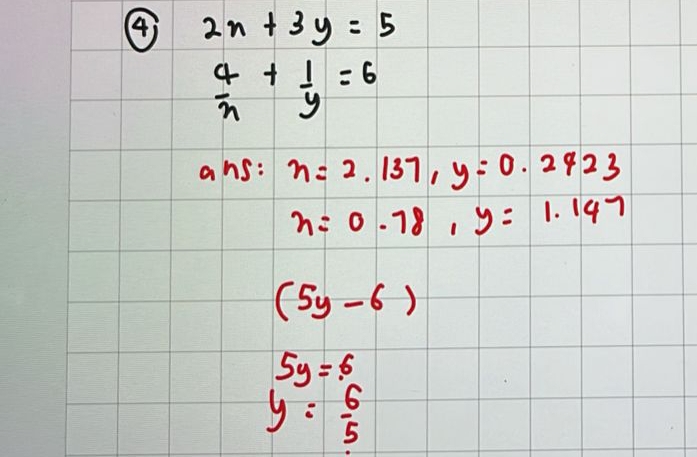 ④ 2x + 3y = 5
4/x + 1/y = 6
ans: x = 2.137, y = 0.2423
x = 0.78, y = 1.147
(5y - 6)
5y = 6
y = 6/5